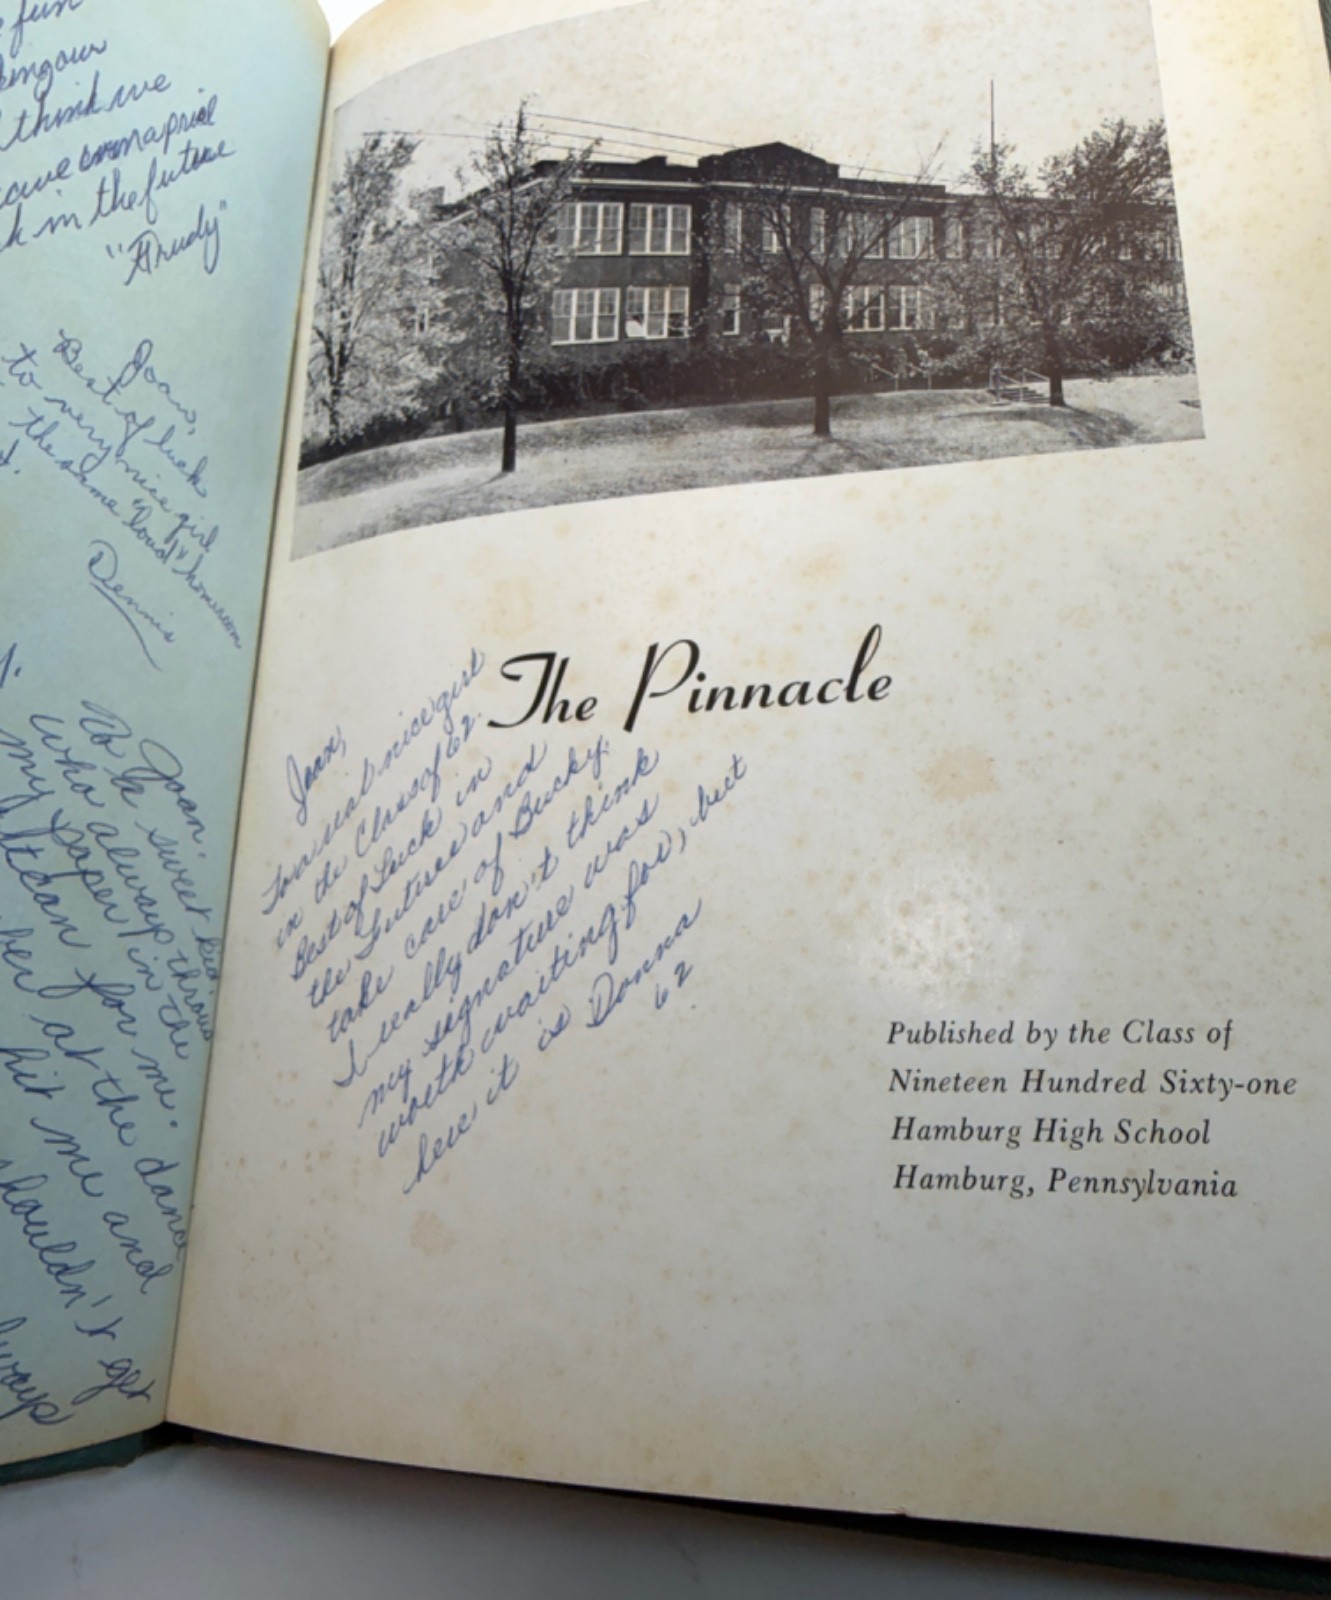 fun
think we
in the future
"Trudy"
Joan,
Best of luck
to very nice girl
the same "loud" homeroom
Dennis
Joan.
To a sweet kid
who always throws
my paper in the
can for me.
at the dance
hit me and
shouldn't get
The Pinnacle
Joan,
To a real nice girl
in the Class of 62.
Best of Luck in
the Future and
take care of Bucky.
I really don't think
my signature was
worth waiting for, but
here it is Donna
62
Published by the Class of
Nineteen Hundred Sixty-one
Hamburg High School
Hamburg, Pennsylvania